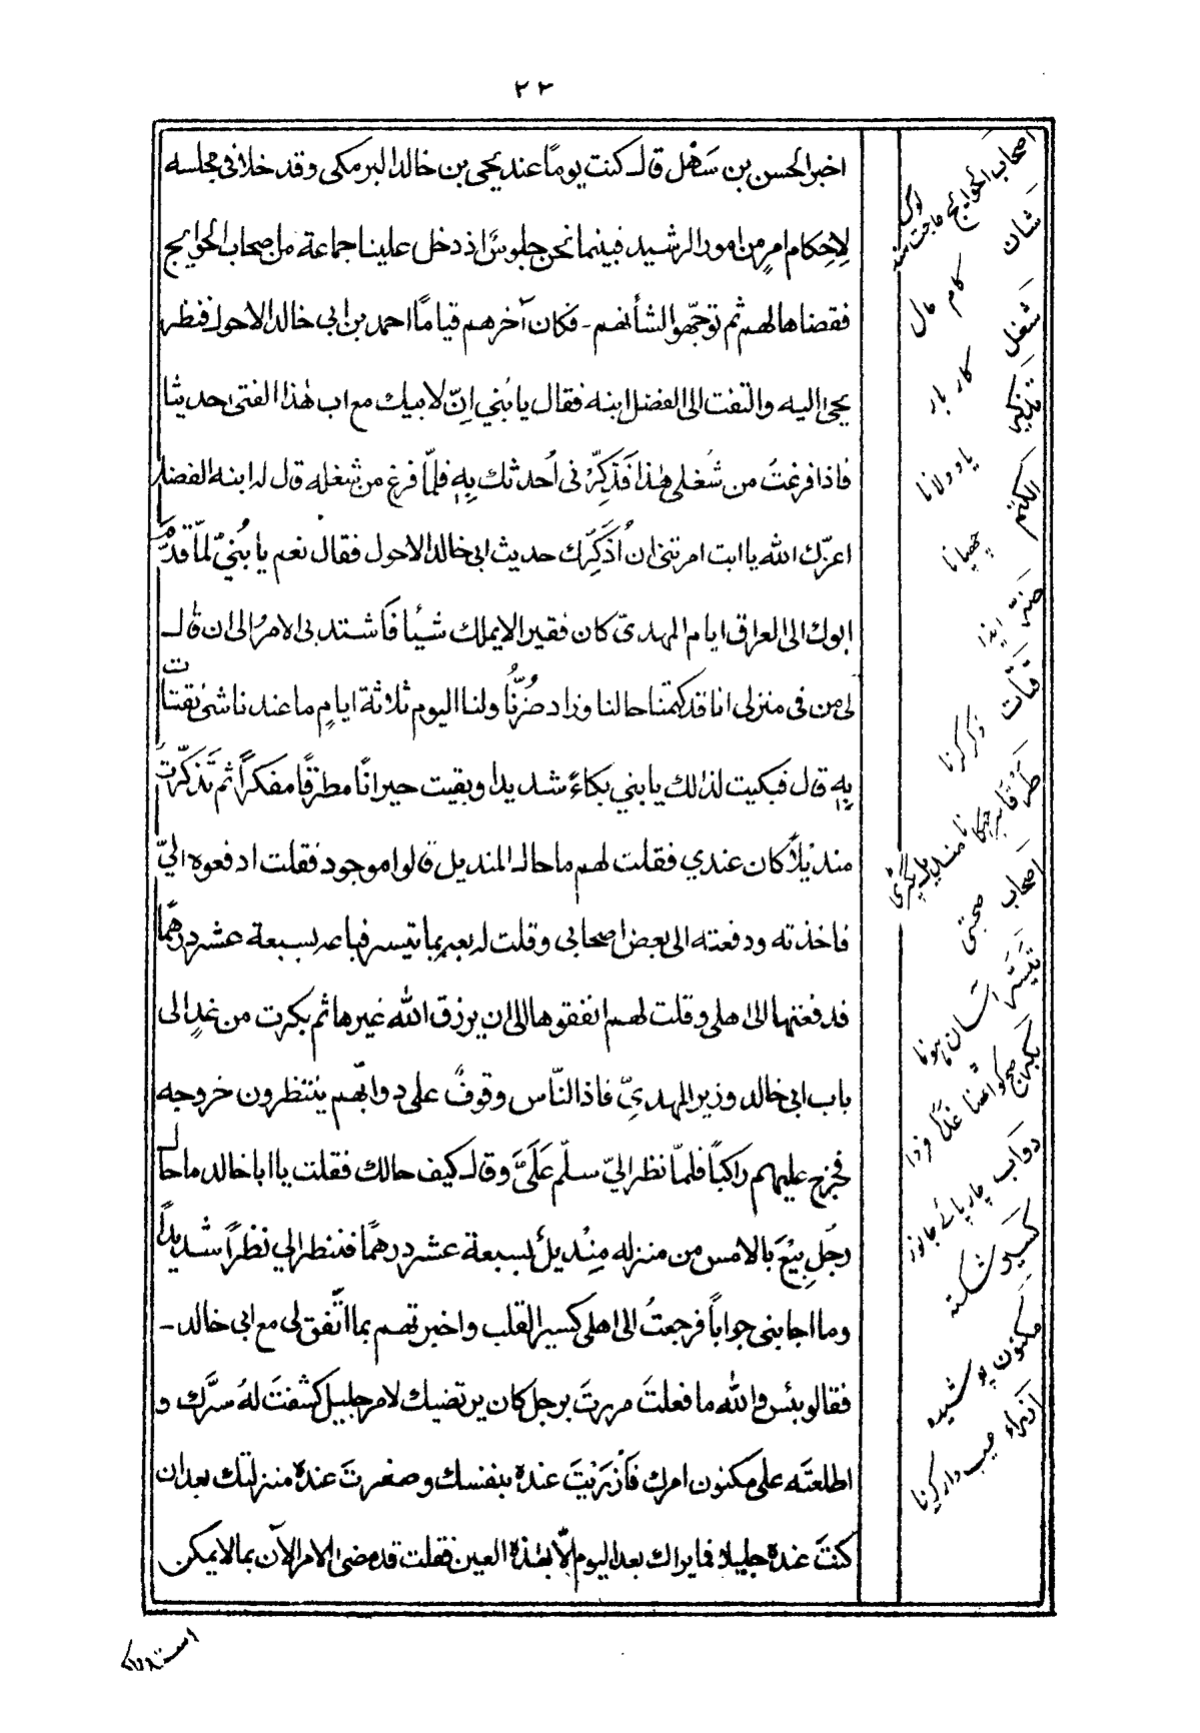 ٢٣
اخبر الحسن بن سَهْل قال كنت يومًا عند يحيى بن خالد البرمكى وقد خلا فى مجلسه
لِاِحِكام امرٍ من امور الرشيد فبينما نحن جلوسٌ اذ دخل علينا جماعة من اصحاب الحوايج
فقضاها لهم ثم توجّهوا لشأنهم - فكان آخرهم قيامًا احمد بن ابى خالد الاحول فنظر
يحيى اليه والتفت الى الفضل ابنه فقال يا بُني اِنّ لابيك مع اب هٰذا الفتى حديثا
فاذا فرغتُ من شُغلى هٰذا فَذَكِّرْنى اُحدثك بِهٖ فلمّا فرغ من شغله قال له ابنه الفضل
اعزّك الله يا ابت امرتنى ان اُذَكِّرَك حديث ابى خالد الاحول فقال نعم يا بُنيّ لمّا قَدِمَ
ابوك الى العراق ايام المهدىّ كان فقيرا لا يملك شيئا فَاشتد بى الامرُ الى ان قال
لى من فى منزلى انا قد كتمنا حالنا وزاد ضُرُّنا ولنا اليوم ثلاثة ايامٍ ما عندنا شئ نقتات
بِهٖ قال فبكيت لذالك يا بني بكاءً شديدا وبقيت حيرانًا مطرقًا مفكرًا ثم تَذَكّرت
منديْلاً كان عندي فقلت لهم ما حال المنديل قالوا موجود فقلت ادفعوه اليّ
فاخذته ودفعته الى بعض اصحابى وقلت له بعهٖ بما تيسر فباعه بسبعة عشر درهمًا
فدفعتها الى اهلى وقلت لهم انفقوها الى ان يرزق الله غيرها ثم بكرت من غدٍ الى
باب ابى خالد وزير المهدىِّ فاذا النّاس وقوفٌ على دوابّهم ينتظرون خروجه
فخرج عليهم راكبًا فلمّا نظر اليّ سلّم عَلَىَّ وقال كيف حالك فقلت يا ابا خالد ما حال
رجُلٍ بِيْعَ بالامس من منزله مِنْديلٌ بسبعة عشر درهمًا فنظر الي نظرًا شديدًا
وما اجابنى جوابًا فرجعتُ الى اهلى كسير القلب واخبرتهم بما اتّفق لى مع ابى خالد -
فقالو بئس والله ما فعلتَ مررتَ برجل كان يرتضيك لامرٍ جليل كشفتَ لهُ سرَّك و
اطلعتَه على مكنون امرك فَاَزْرَيْتَ عنده بنفسك وصغرتَ عنده منزلتك بعد ان
كنتَ عنده جليلا فما يراك بعد اليوم اِلّا بهٰذه العين فقلت قد مضى الامر الآن بما لا يمكن
اصحاب الحوايج لوگ حاجت مند
شان
كام حال
شغل
كار بار
تذكير
ياد دلانا
الكتم
چھپانا
ضرّ ايذا
اصحاب
صحبتى
تيسّر آسان ہونا
غداً فردا
دواب چار پائے جانور
كسير شكسته
مكنون پوشيده
ازراء عيب دار كرنا